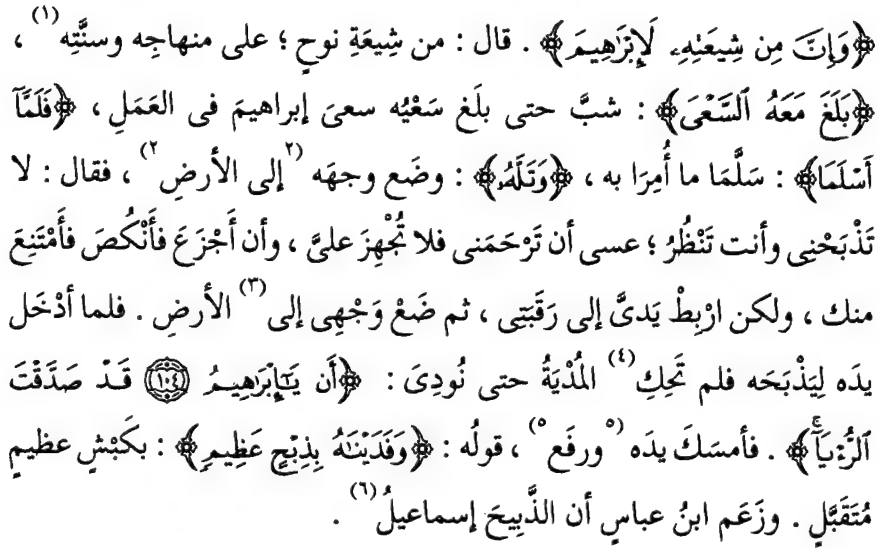 ﴿وَإِنَّ مِن شِيعَتِهِۦ لَإِبْرَٰهِيمَ﴾ . قال : من شِيعَةِ نوحٍ ؛ على منهاجِه وسنَّتِه(١) ،
﴿بَلَغَ مَعَهُ ٱلسَّعْىَ﴾ : شبَّ حتى بلَغ سَعْيُه سعىَ إبراهيمَ فى العَمَلِ ، ﴿فَلَمَّآ
أَسْلَمَا﴾ : سَلَّمَا ما أُمِرَا به ، ﴿وَتَلَّهُۥ﴾ : وضَع وجهَه (٢إلى الأرضِ٢) ، فقال : لا
تَذْبَحْنِى وأنت تَنْظُرُ ؛ عسى أن تَرْحَمَنى فلا تُجْهِزَ علىَّ ، وأن أَجْزَعَ فأَنْكُصَ فأَمْتَنِعَ
منك ، ولكن ارْبِطْ يَدىَّ إلى رَقَبَتِى ، ثم ضَعْ وَجْهِى إلى(٣) الأرضِ . فلما أدْخَل
يدَه لِيَذْبَحَه فلم تَحِكِ(٤) المُدْيَةُ حتى نُودِىَ : ﴿أَن يَٰٓإِبْرَٰهِيمُ ۝١٠٤ قَدْ صَدَّقْتَ
ٱلرُّءْيَآۚ﴾ . فأمسَكَ يدَه (٥ورفَع٥) ، قولُه : ﴿وَفَدَيْنَٰهُ بِذِبْحٍ عَظِيمٍ﴾ : بكَبْشٍ عظيمٍ
مُتَقَبَّلٍ . وزَعَم ابنُ عباسٍ أن الذَّبِيحَ إسماعيلُ(٦) .